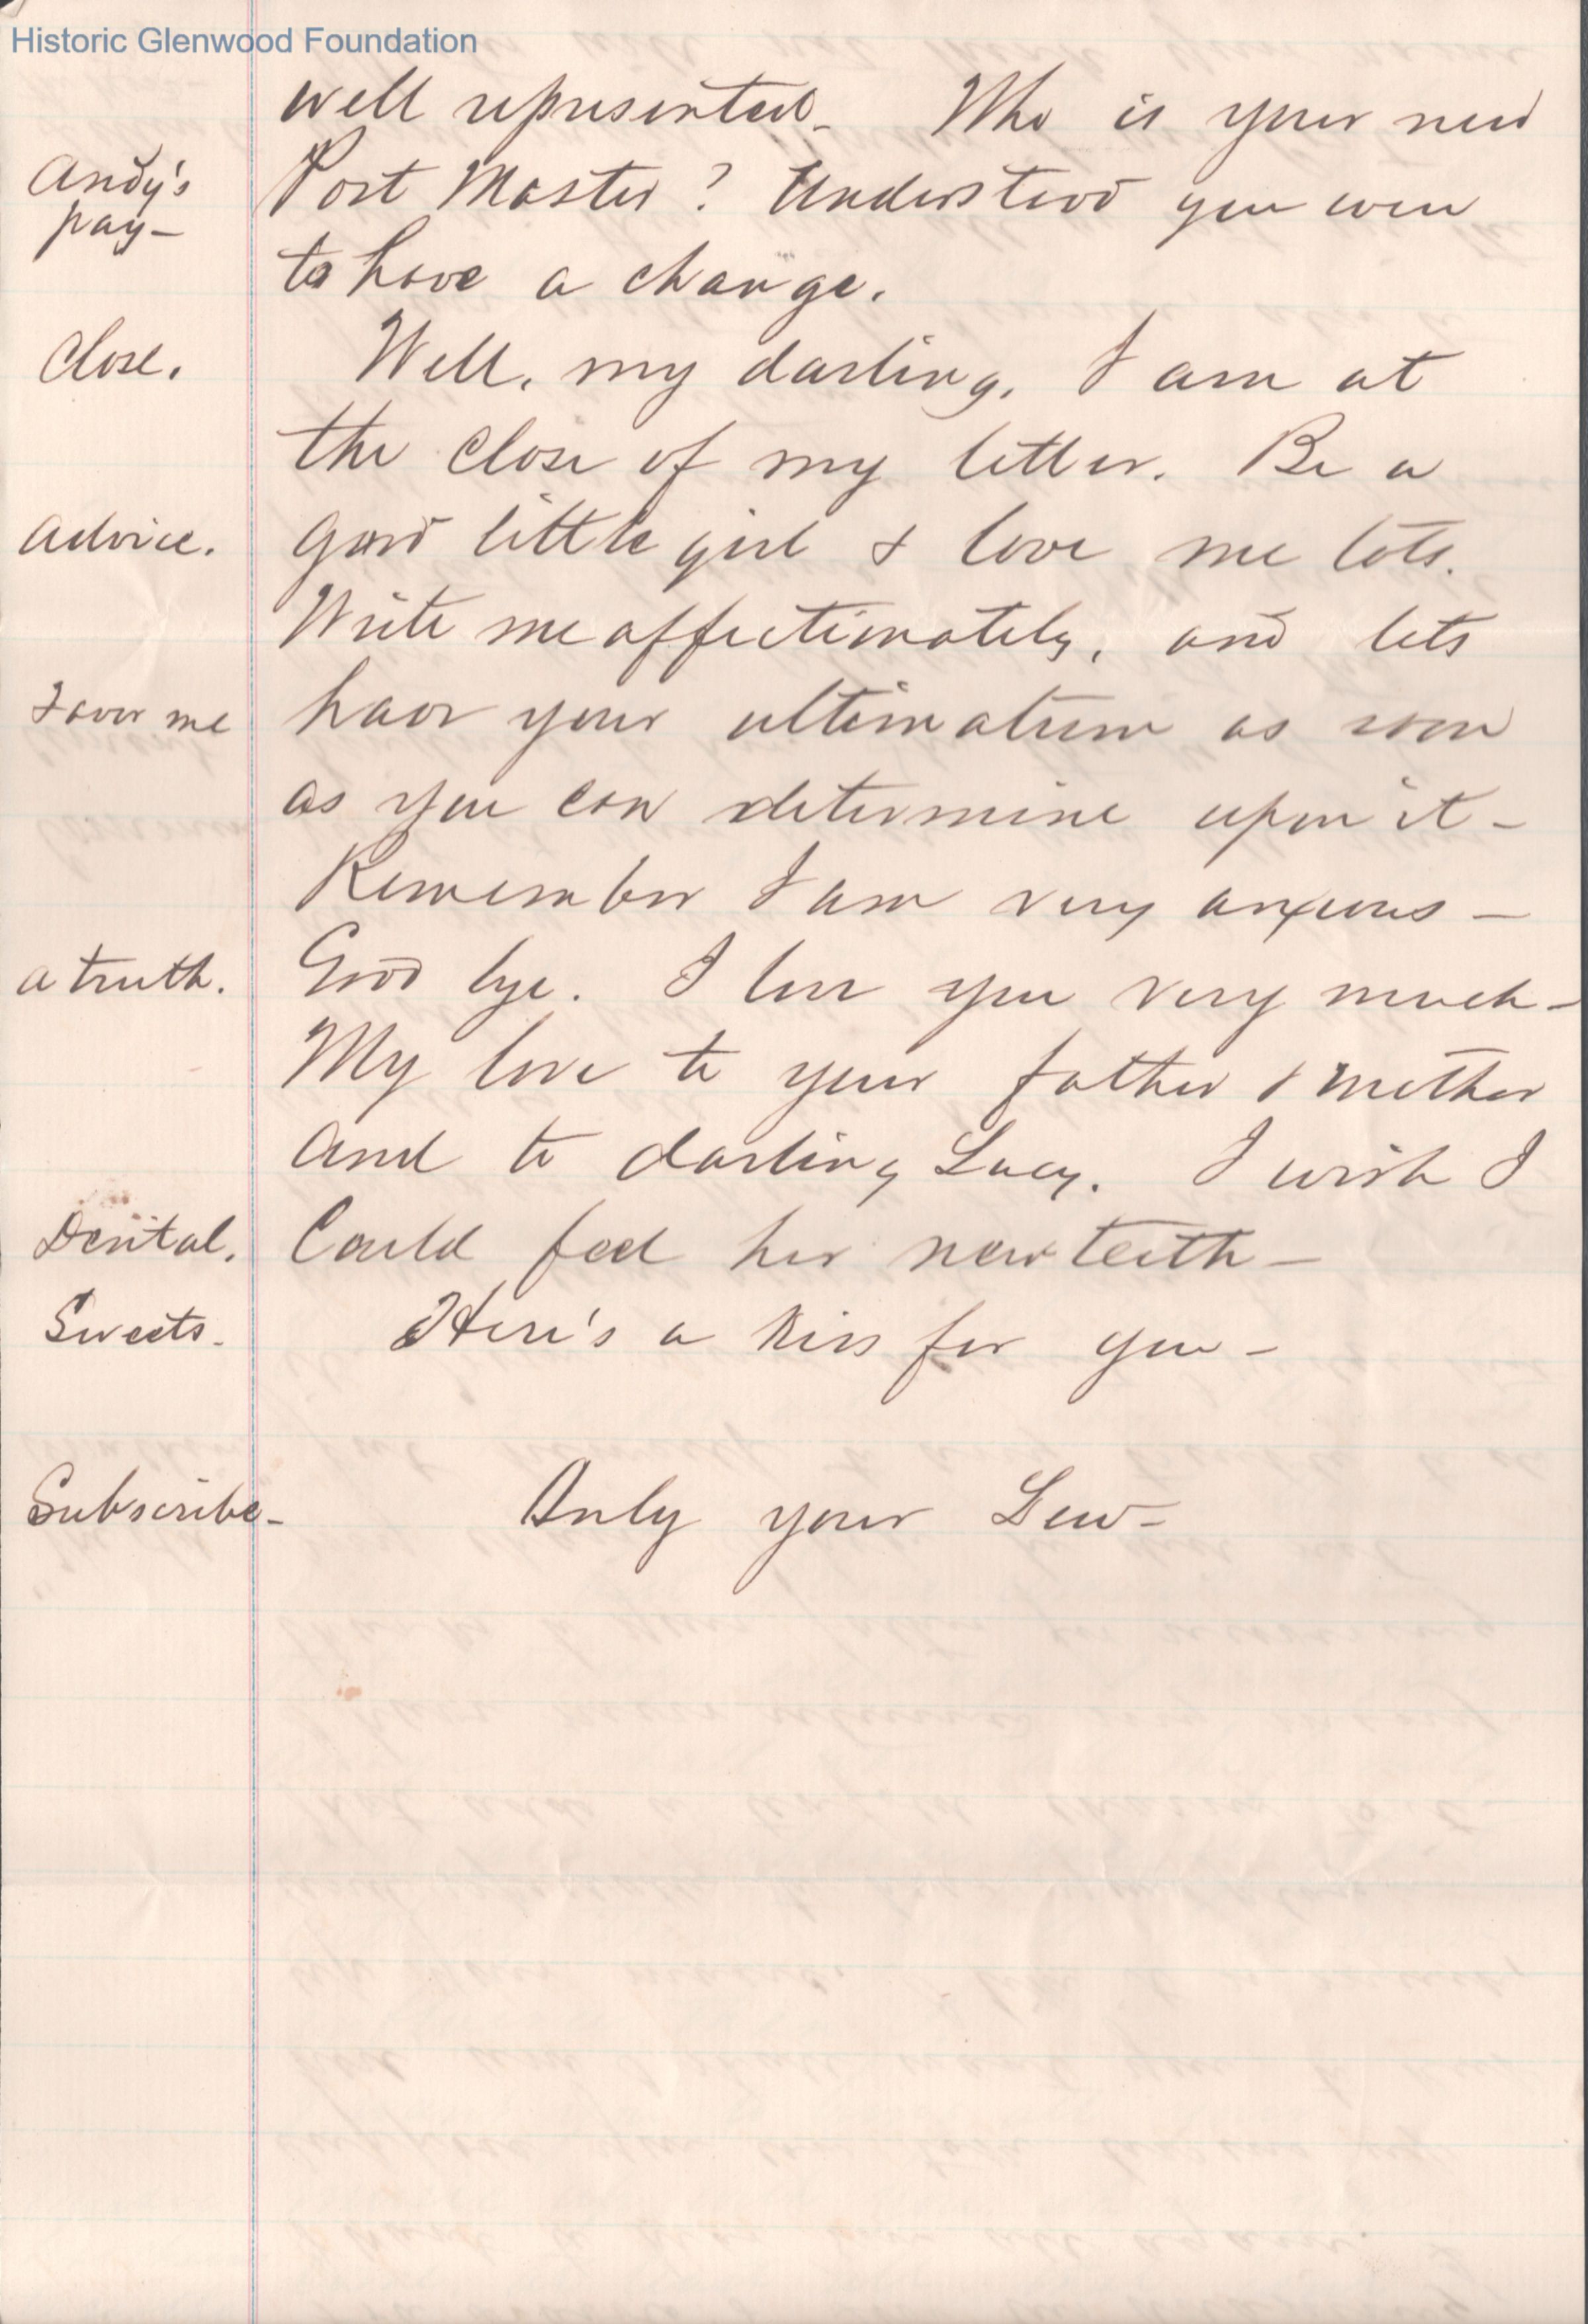 Historic Glenwood Foundation
well represented - Who is your new
Andy's pay - Post Master ? Understood you were
to have a change.
Close. Well, my darling, I am at
the close of my letter. Be a
Advice. good little girl & love me lots.
Write me affectionately, and lets
Favor me have your ultimatum as soon
as you can determine upon it -
Remember I am very anxious -
A truth. Good bye. I love you very much -
My love to your father & mother
and to darling Lucy. I wish I
Dental. Could feel her new teeth -
Sweets - Here's a kiss for you -
Subscribe - Only your Lew -